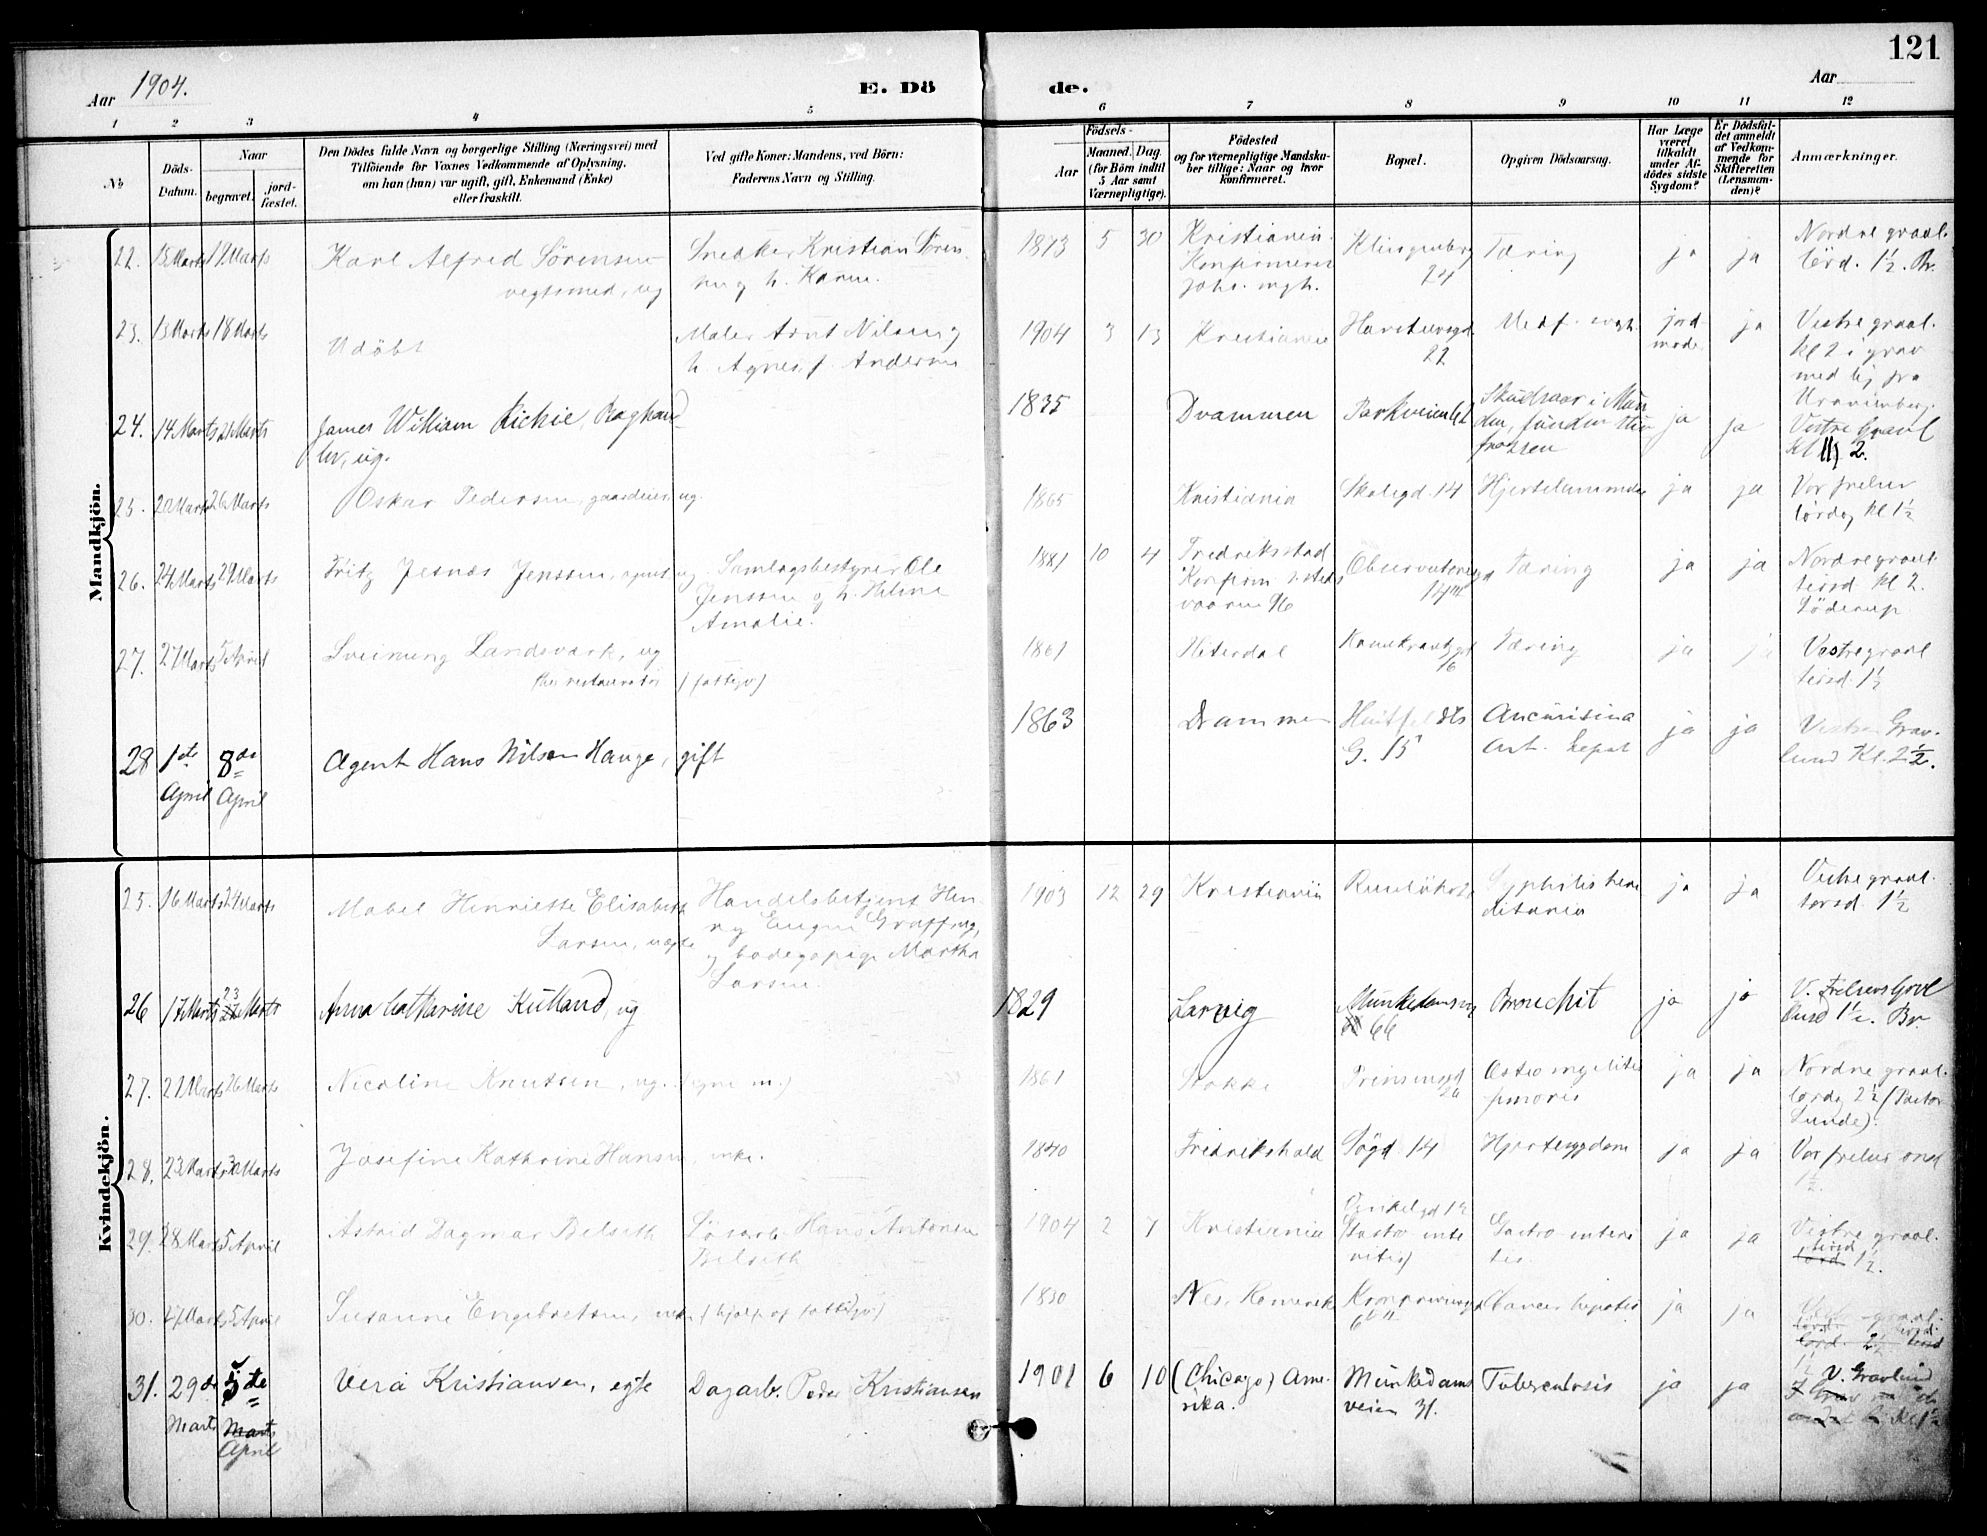 121
Aar 1904.
E. Dö
de.
Aar
1 2 3 4 5 6 7 8 9 10 11 12
No
Döds-
Datum.
Naar
begravet.
jord-
fæstet.
Den Dödes fulde Navn og borgerlige Stilling (Næringsvei) med
Tilföiende for Voxnes Vedkommende af Oplysning,
om han (hun) var ugift, gift, Enkemand (Enke)
eller fraskilt.
Ved gifte Koner: Mandens, ved Börn:
Faderens Navn og Stilling.
Födsels-
Aar
Maaned. Dag.
(for Börn indtil
5 Aar samt
Værnepligtige).
Födested
og for værnepligtige Mandska-
ber tillige: Naar og hvor
konfirmeret.
Bopæl.
Opgiven Dödsaarsag.
Har Læge
været
tilkaldt
under Af-
dödes sidste
Sygdom?
Er Dödsfal-
det anmeldt
af Vedkom-
mende for
Skifteretten
(Lensman-
den)?
Anmærkninger.
Mandkjön.
22. 15 Marts 19 Marts
Karl Alfred Sörensen
ug
Snedker Kristian Sören-
sen og h. Karen.
1873 5 30
Kristiania.
Konfirmeret
Klingenberg
24
Tæring
ja ja
Nordre gravl.
lörd. 1½. Br.
23. 13 Marts 18 Marts
Udöbt
Maler Arnt Nilsen og
h. Agnes f. Andersen
1904 3 13
Kristiania
22
Medf.
jord
moder
ja
Vestre gravl.
kl 2 i grav
med lig fra
24. 14 Marts 21 Marts
James William Richie, Boghand-
ler, ug.
1835
Drammen
Parkveien 62
Skudsaar i Mun-
den, funden
frossen
ja ja
Vestre Gravl
Kl 2.
25. 20 Marts 26 Marts
Oskar Pedersen, gaardeier, ug.
1865
Kristiania
Skolegd. 14
ja ja
Vor frelser
lördag kl 1½
26. 24 Marts 29 Marts
Fritz Jesnæs Jenssen, agent, ug.
Samlagsbestyrer Ole
Jenssen og h. Heline
Amalie.
1881 10 4
Fredriksstad
Konfirm.
vaaren 96
Observatoriegd
Tæring
ja ja
Nordre gravl.
tirsd kl 2.
Söderup
27. 27 Marts 5 April
Sveinung Landsværk, ug
(fattigv)
1861
Hiterdal
16
Tæring
ja ja
Vestre gravl
tirsd. 1½
28 1ste April 8de April
Agent Hans Nilsen Hauge, gift
1863
Drammen
Huitfeldts
G. 15
ja ja
Vestre Grav-
lund Kl. 2½.
Kvindekjön.
25. 16 Marts 24 Marts
Mabel Henriette Elisabeth
Larsen, uægte
Handelsbetjent Hen-
ry Eugen
og bodegapige Martha
Larsen
1903 12 29
Kristiania
Syphilis here
ditaria
ja ja
Vestre gravl.
torsd. 1½
26 17 Marts 23 Marts
Anna Cathrine Kulland, ug
1829
Larvig
Munkedamsv
66
Bronchit
ja ja
V. Frelsers Grvl
Onsd 1½. Br
27. 21 Marts 26 Marts
Nicoline Knutsen, ug. (egne m.)
1861
Stokke
Prinsensgd
Osteomyelitis
femoris
ja ja
Nordre gravl.
lördag 2½ (Pastor
Lunde).
28. 23 Marts 30 Marts
Josefine Kathrine Hansen, enke.
1840
Fredrikshald
Søgd 14
Hjertesygdom
ja ja
Vor frelser onsd
½.
29. 28 Marts 5 April
Astrid Dagmar Belseth
Lösarb. Hans Antonsen
Belseth
1904 2 7
Kristiania
Vinkelgd 12
(Gastro ente
ritis)
Gastro enteri
tis.
ja ja
Vestre gravl.
tirsd
lørd. 1½.
30. 27 Marts 5 April
Susanne Engebretsen, enke (hjælp af fattigv)
1830
Nes, Romerike
Kronprinsensgd
Cancer hepatis
ja ja
31. 29de Marts 5te Marts April
Vera Kristiansen, egte
Dagarb. Peder Kristiansen
1901 6 10
(Chicago) Ame-
rika.
Munkedams
veien 31.
Tuberculosis
ja ja
V. Gravlund